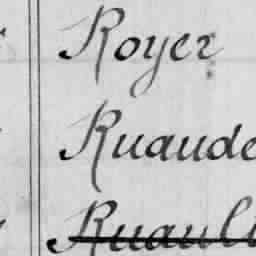 Royer
Ruaude
Ruault